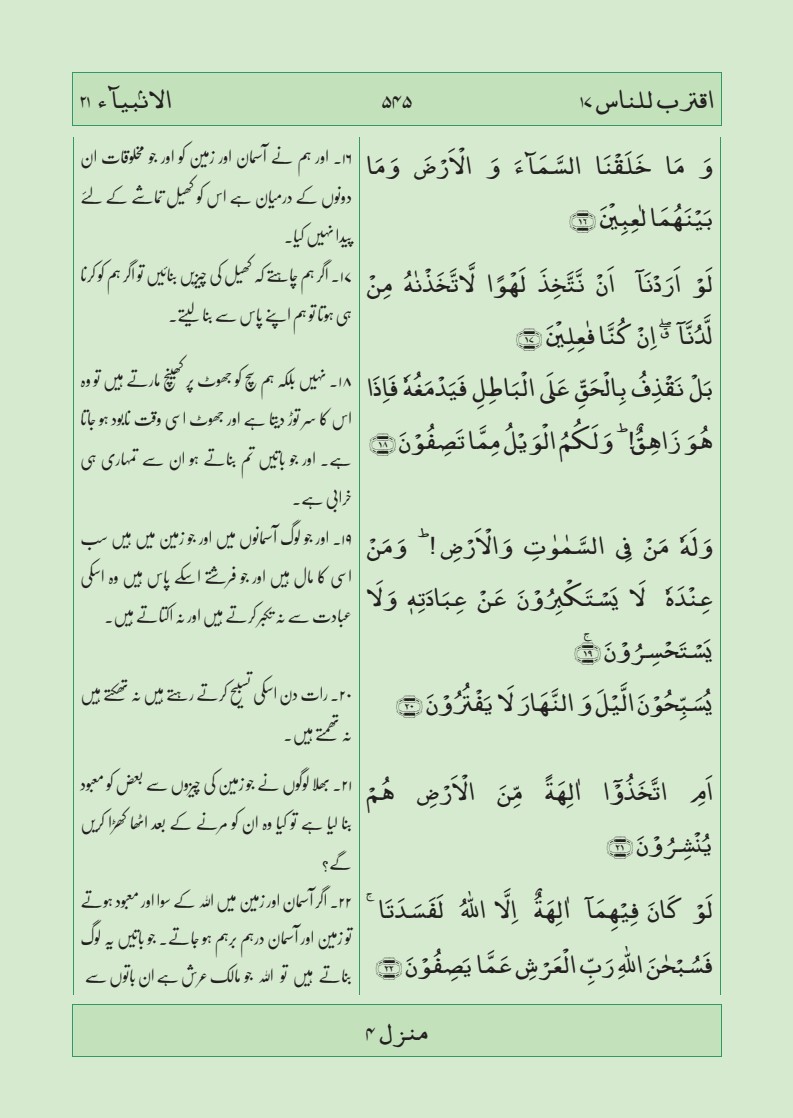 اقترب للناس ۱۷
۵۴۵
الانبیآء ۲۱
وَ مَا خَلَقْنَا السَّمَآءَ وَ الْاَرْضَ وَمَا
بَیْنَهُمَا لٰعِبِیْنَ ﴿۱۶﴾
لَوْ اَرَدْنَاۤ اَنْ نَّتَّخِذَ لَهْوًا لَّاتَّخَذْنٰهُ مِنْ
لَّدُنَّاۤ ۖق اِنْ كُنَّا فٰعِلِیْنَ ﴿۱۷﴾
بَلْ نَقْذِفُ بِالْحَقِّ عَلَی الْبَاطِلِ فَیَدْمَغُهٗ فَاِذَا
هُوَ زَاهِقٌ! ؕ وَ لَكُمُ الْوَیْلُ مِمَّا تَصِفُوْنَ ﴿۱۸﴾
وَلَهٗ مَنْ فِی السَّمٰوٰتِ وَالْاَرْضِ! ؕ وَمَنْ
عِنْدَهٗ لَا یَسْتَكْبِرُوْنَ عَنْ عِبَادَتِهٖ وَلَا
یَسْتَحْسِرُوْنَ ﴿۱۹﴾ۚ
یُسَبِّحُوْنَ الَّیْلَ وَ النَّهَارَ لَا یَفْتُرُوْنَ ﴿۲۰﴾
اَمِ اتَّخَذُوْۤا اٰلِهَةً مِّنَ الْاَرْضِ هُمْ
یُنْشِرُوْنَ ﴿۲۱﴾
لَوْ كَانَ فِیْهِمَاۤ اٰلِهَةٌ اِلَّا اللّٰهُ لَفَسَدَتَا ۚ
فَسُبْحٰنَ اللّٰهِ رَبِّ الْعَرْشِ عَمَّا یَصِفُوْنَ ﴿۲۲﴾
۱۶۔ اور ہم نے آسمان اور زمین کو اور جو مخلوقات ان
دونوں کے درمیان ہے اس کو کھیل تماشے کے لئے
پیدا نہیں کیا۔
۱۷۔ اگر ہم چاہتے کہ کھیل کی چیزیں بنائیں تو اگر ہم کو کرنا
ہی ہوتا تو ہم اپنے پاس سے بنا لیتے۔
۱۸۔ نہیں بلکہ ہم سچ کو جھوٹ پر کھینچ مارتے ہیں تو وہ
اس کا سر توڑ دیتا ہے اور جھوٹ اسی وقت نابود ہو جاتا
ہے۔ اور جو باتیں تم بناتے ہو ان سے تمہاری ہی
خرابی ہے۔
۱۹۔ اور جو لوگ آسمانوں میں اور جو زمین میں ہیں سب
اسی کا مال ہیں اور جو فرشتے اسکے پاس ہیں وہ اسکی
عبادت سے نہ تکبر کرتے ہیں اور نہ اکتاتے ہیں۔
۲۰۔ رات دن اسکی تسبیح کرتے رہتے ہیں نہ تھکتے ہیں
نہ تھمتے ہیں۔
۲۱۔ بھلا لوگوں نے جو زمین کی چیزوں سے بعض کو معبود
بنا لیا ہے تو کیا وہ ان کو مرنے کے بعد اٹھا کھڑا کریں
گے؟
۲۲۔ اگر آسمان اور زمین میں اللہ کے سوا اور معبود ہوتے
تو زمین اور آسمان درہم برہم ہو جاتے۔ جو باتیں یہ لوگ
بناتے ہیں تو اللہ جو مالک عرش ہے ان باتوں سے
منزل ۴